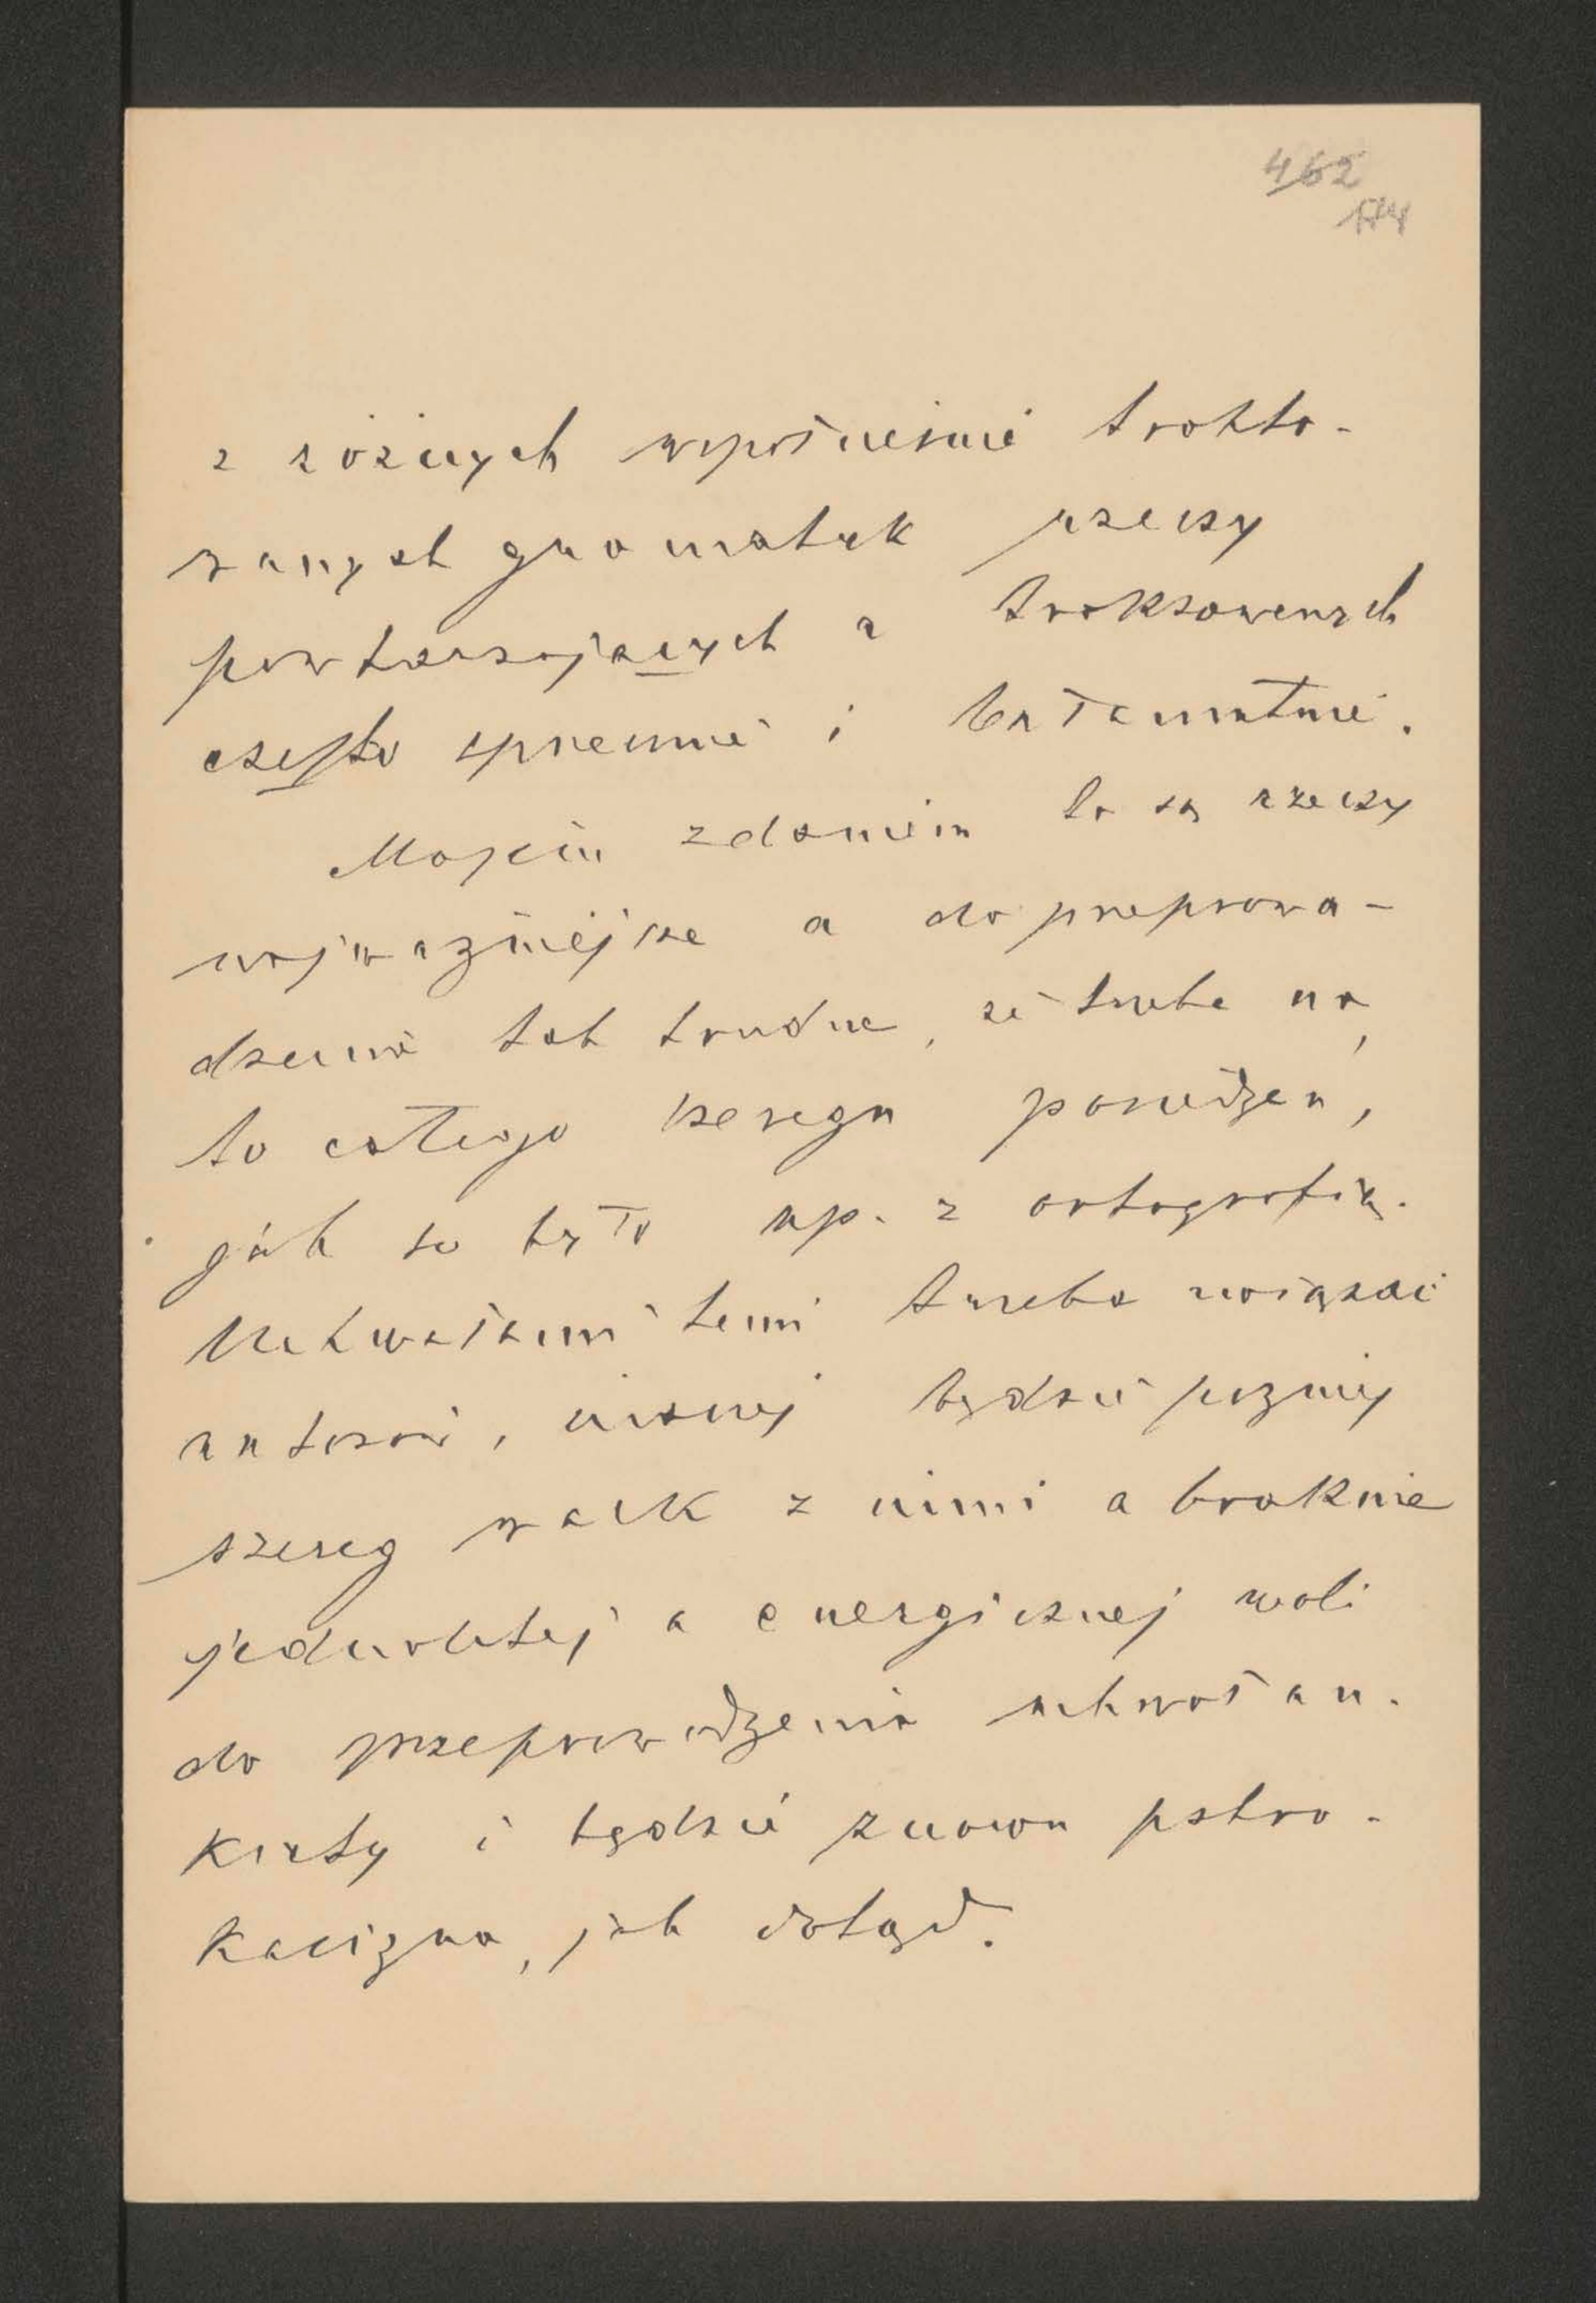 462
174
z różnych współcześnie trakto-
wanych gramatyk rzeczy
powtarzających a traktowanych
często sprzecznie i bałamutnie.
Mojem zdaniem to są rzeczy
najważniejsze a do przeprowa-
dzenia tak trudne, że trzeba na
to całego szeregu posiedzeń,
jak to było np. z ortografią.
Uchwałami temi trzeba związać
autorów, inaczej będzie późniéj
szereg walk z nimi a braknie
jednolitej a energicznej woli
do przeprowadzenia uchwał an-
kiety i będzie znowu pstro-
kacizna, jak dotąd.